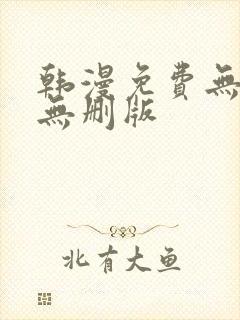 韩漫免費無
無删版
北有大鱼